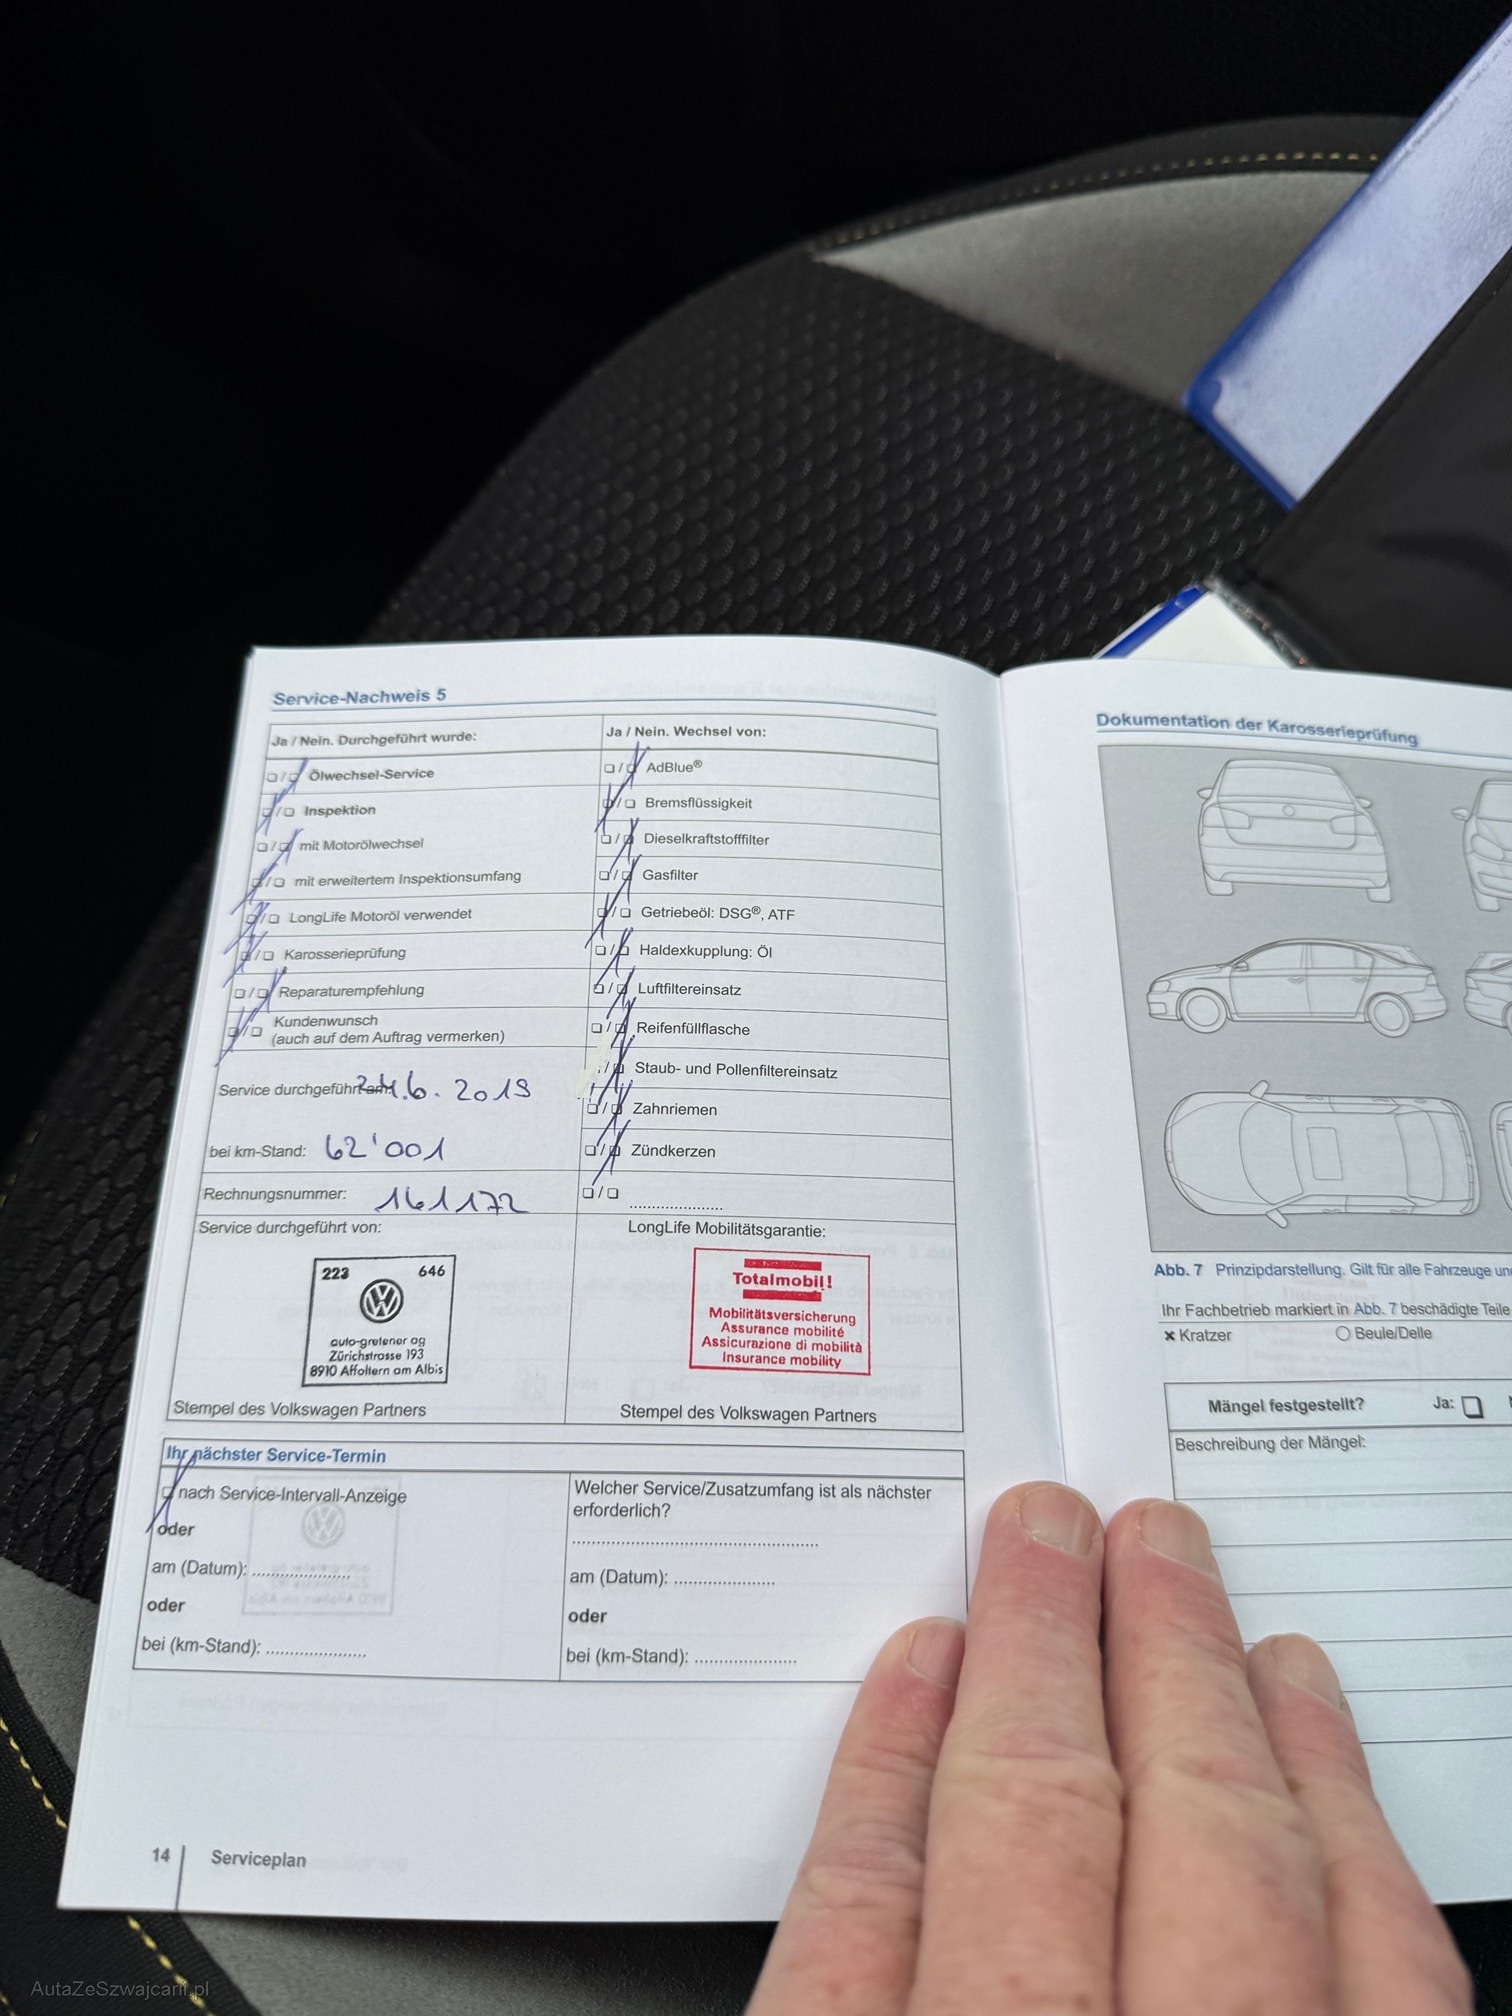 Service-Nachweis 5
Ja / Nein. Durchgeführt wurde:
Ölwechsel-Service
Inspektion
mit Motorölwechsel
mit erweitertem Inspektionsumfang
LongLife Motoröl verwendet
Karosserieprüfung
Reparaturempfehlung
Kundenwunsch
(auch auf dem Auftrag vermerken)
Service durchgeführt am: 24.6.2019
bei km-Stand: 62'001
Rechnungsnummer: 161172
Service durchgeführt von:
223 646
auto-gretener ag
Zürichstrasse 193
8910 Affoltern am Albis
Stempel des Volkswagen Partners
Ja / Nein. Wechsel von:
AdBlue®
Bremsflüssigkeit
Dieselkraftstofffilter
Gasfilter
Getriebeöl: DSG®, ATF
Haldexkupplung: Öl
Luftfiltereinsatz
Reifenfüllflasche
Staub- und Pollenfiltereinsatz
Zahnriemen
Zündkerzen
LongLife Mobilitätsgarantie:
Totalmobil!
Mobilitätsversicherung
Assurance mobilité
Assicurazione di mobilità
Insurance mobility
Stempel des Volkswagen Partners
Ihr nächster Service-Termin
nach Service-Intervall-Anzeige
oder
am (Datum): ....................
oder
bei (km-Stand): ....................
Welcher Service/Zusatzumfang ist als nächster
erforderlich?
am (Datum): ....................
oder
bei (km-Stand): ....................
14 Serviceplan
Dokumentation der Karosserieprüfung
Abb. 7 Prinzipdarstellung. Gilt für alle Fahrzeuge
Ihr Fachbetrieb markiert in Abb. 7 beschädigte Teile
× Kratzer
Beule/Delle
Mängel festgestellt? Ja:
Beschreibung der Mängel:
AutaZeSzwajcarii.pl